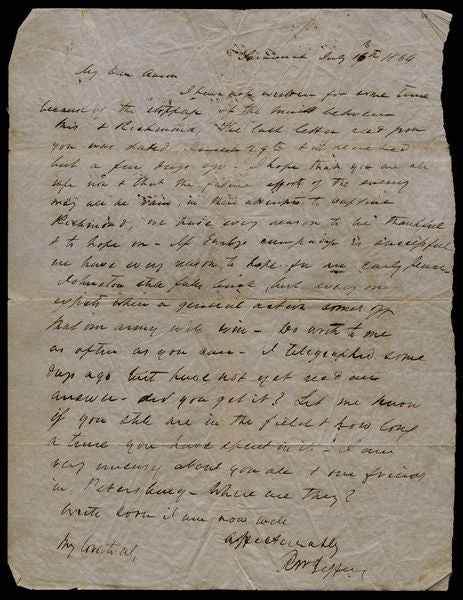 Savannah July 16th 1864
My Dear
I have not written for some time
because of the stoppage of the mail between
this & Richmond, The last letter recd from
you was dated 29th & it reached
but a few days ago - I hope that you are all
safe now & that the future efforts of the enemy
may all be vain, in their attempts to capture
Richmond, we have every reason to be thankful
& to hope on - If Earlys campaign is successful
we have every reason to hope for an early peace -
Johnston still falls back, but every one
expects when a general action comes off
that our army will win - Do write to me
as often as you can - I telegraphed some
days ago but have not yet recd an
answer - did you get it? Let me know
if you still are in the field & how long
a time you have spent in it - I am
very uneasy about you all & our friends
in Petersburg - Where are they?
Write soon am now well
affectionately
My love to all,